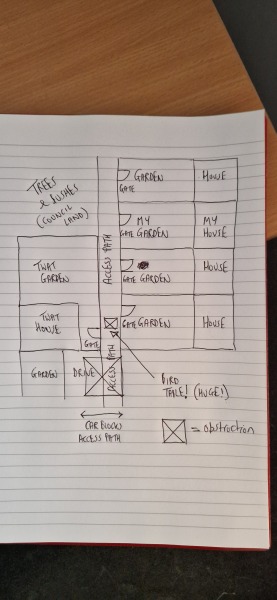 GARDEN
HOUSE
GATE
TREES
& BUSHES
(COUNCIL
LAND)
ACCESS PATH
MY
GATE GARDEN
MY
HOUSE
TWAT
GARDEN
GATE GARDEN
HOUSE
TWAT
HOUSE
GATE GARDEN
HOUSE
GATE
GARDEN
DRIVE
ACCESS PATH
BIRD
TABLE! (HUGE!)
CAR BLOCKS
ACCESS PATH
= obstruction